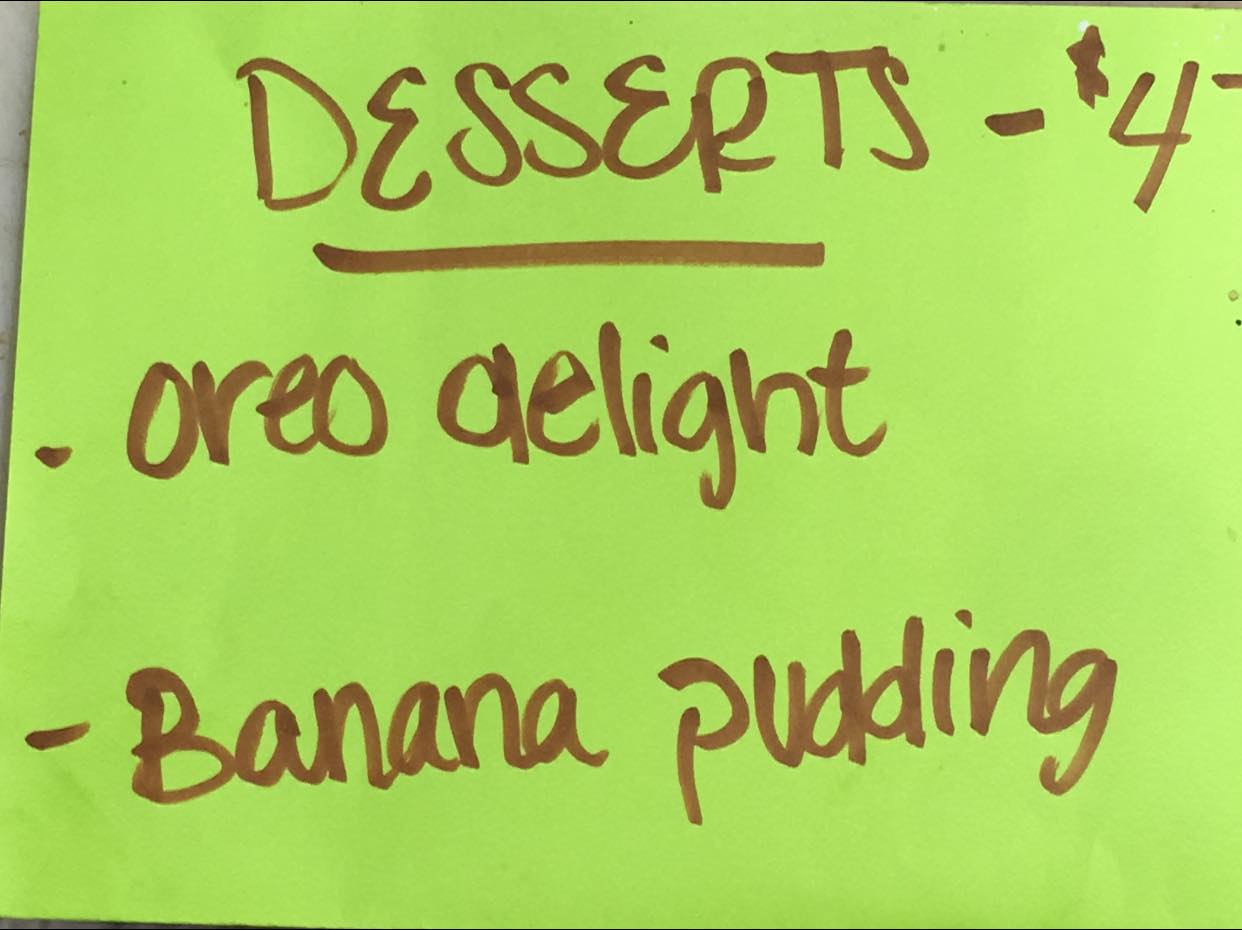 DESSERTS - $4-
. oreo delight
- Banana pudding